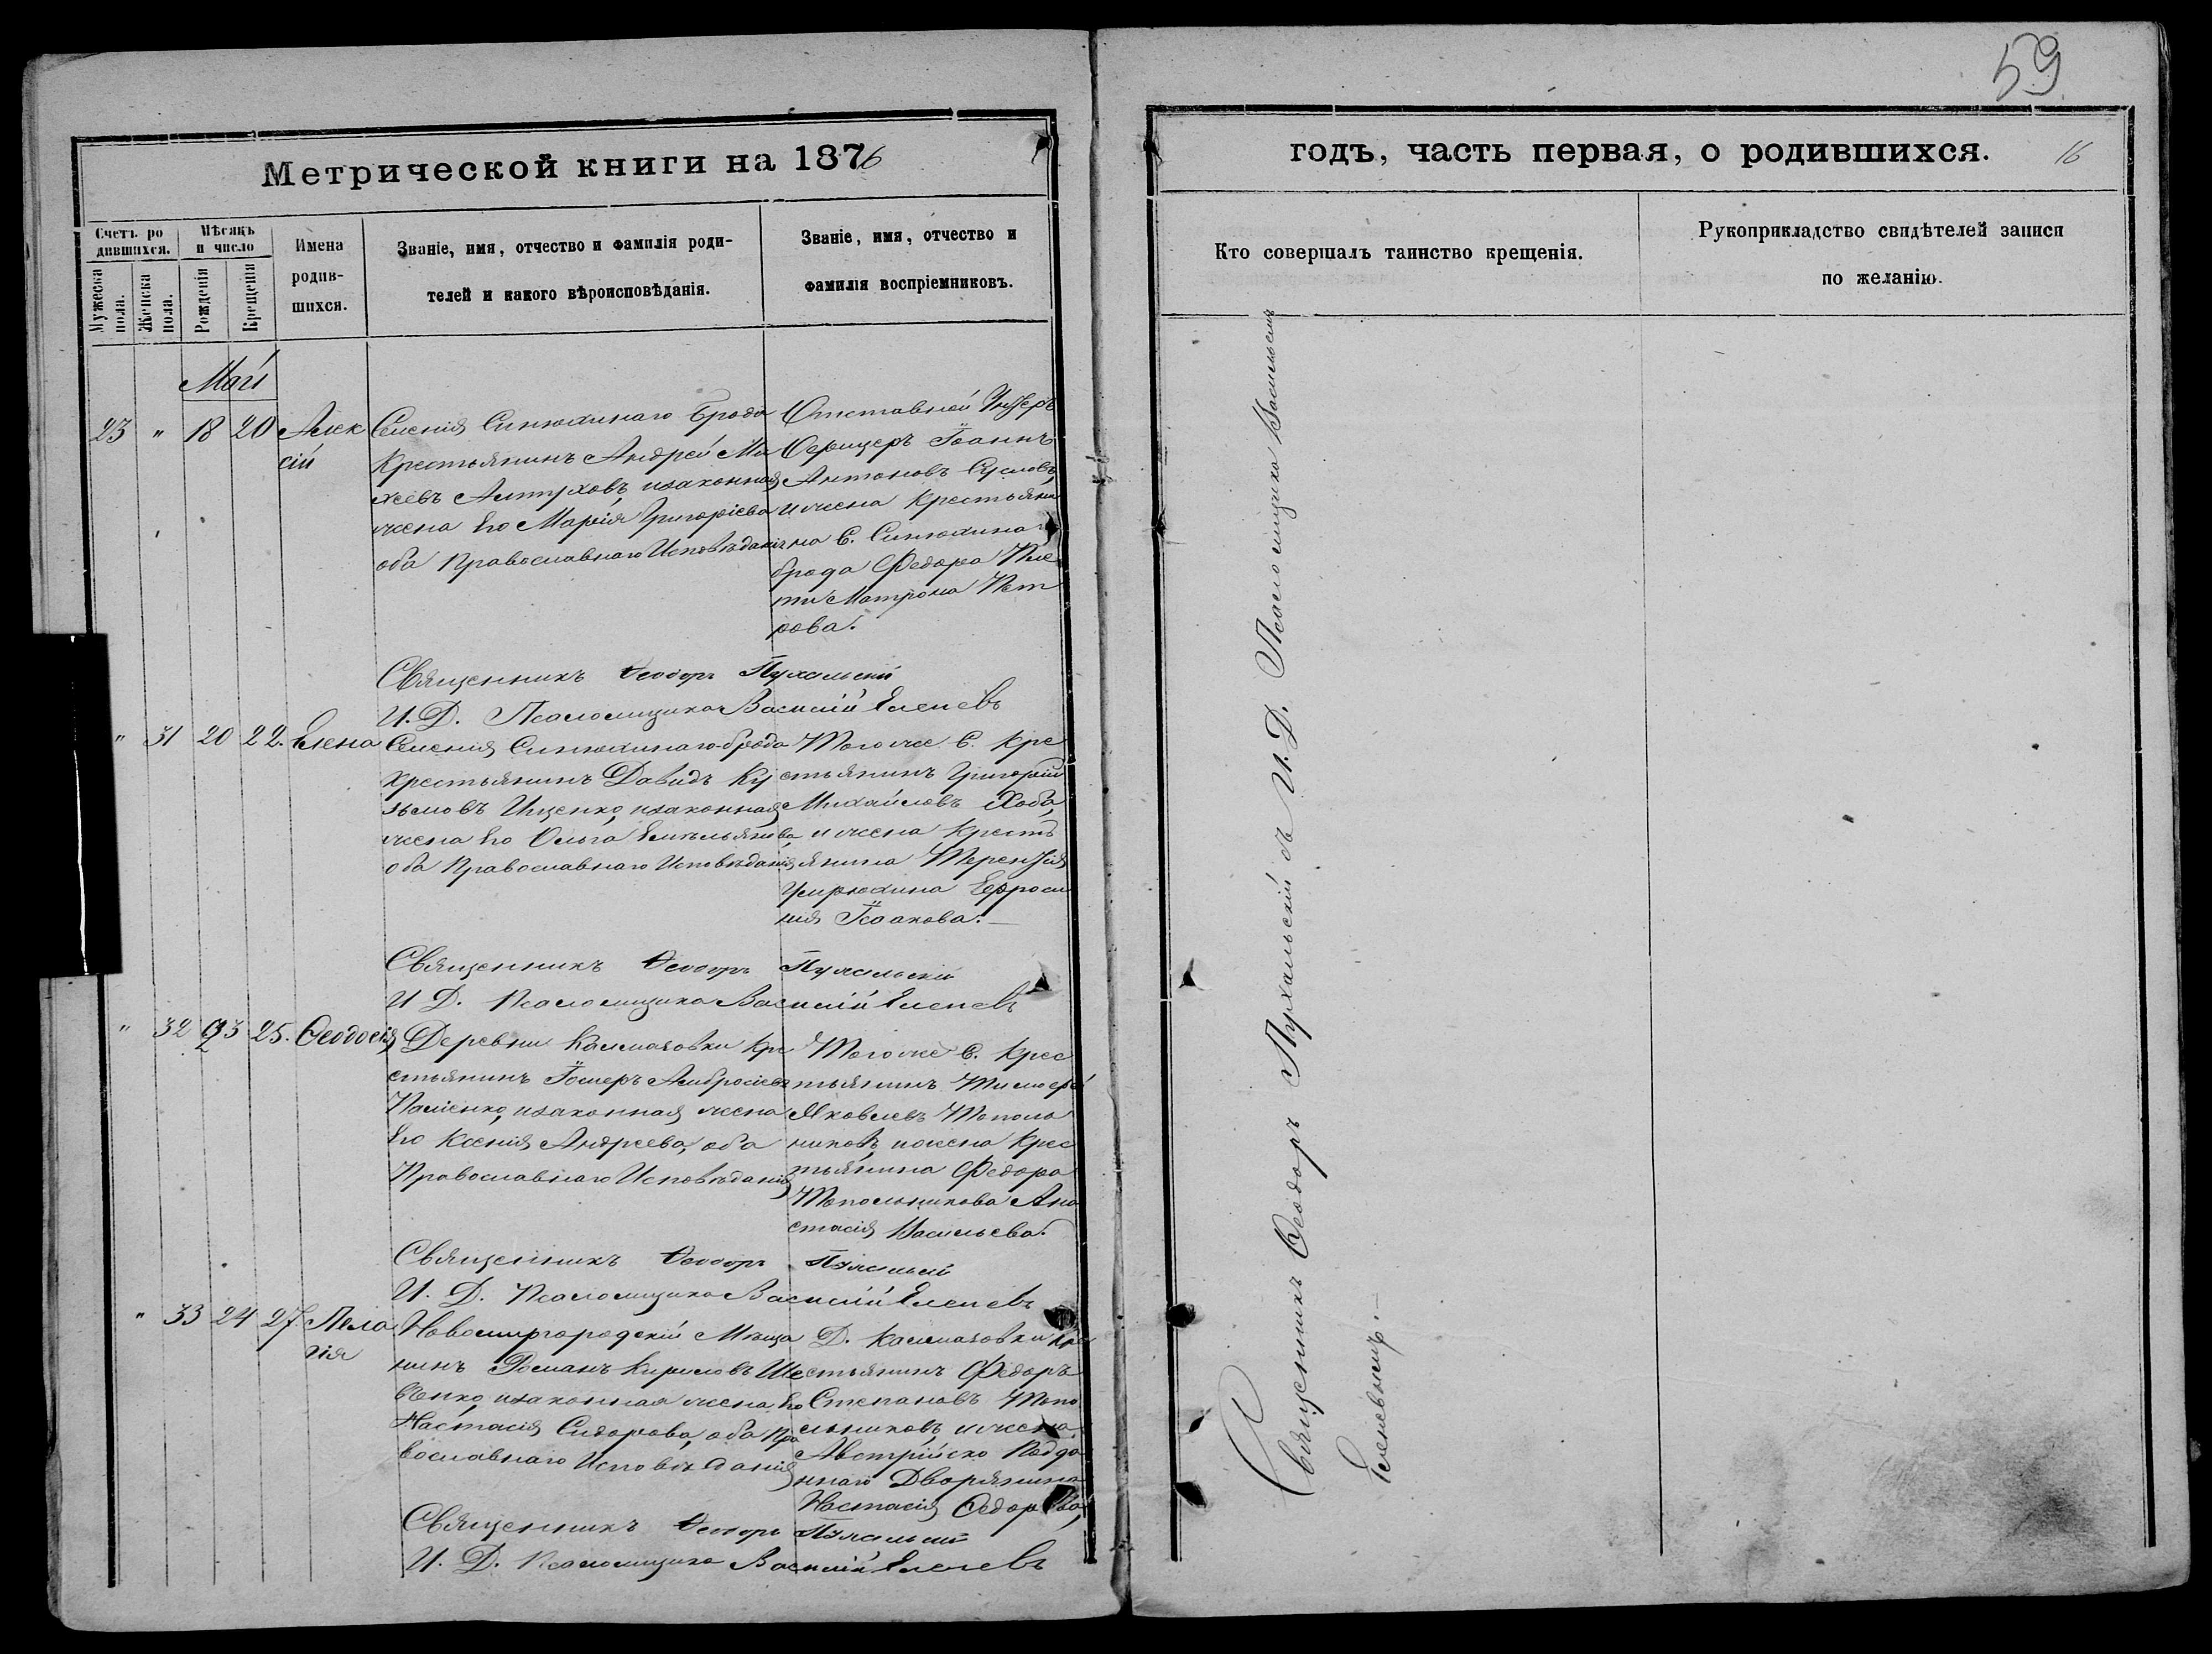 59
Метрической книги на 1876
годъ, часть первая, о родившихся.
16
Счетъ ро
дившихся.
Мѣсяцъ
и число
Мужеска
пола.
Женска
пола.
Рожденія
Крещенія
Имена
родив-
шихся.
Званіе, имя, отчество и фамилія роди-
телей и какого вѣроисповѣданія.
Званіе, имя, отчество и
фамилія воспріемниковъ.
Кто совершалъ таинство крещенія.
Рукоприкладство свидѣтелей записи
по желанію.
Май
23 " 18 20 Алек
сій
Селенія Синюхинаго Брода
Крестьянинъ Андрей Ми
хеевъ Алтуховъ, изаконная
жена Его Марія Григоріева
оба Православнаго Исповѣданія
Отставной Унтеръ
Офицеръ Іоаннъ
Антоновъ Сусловъ,
и жена Крестьяни
на С. Синюхина
брода Федора
Матрона Пет
рова.
Священникъ Ѳеодоръ Пухальскій
И. Д. Псаломщика Василій Еленевъ
" 31 20 22. Елена
Селенія Синюхинаго-брода
Крестьянинъ Давидъ Ку
зьмовъ Ищенко, изаконная
жена Его Ольга Емельянова,
оба Православнаго Исповѣданія
Того же С. Кре
стьянинъ Григорій
Михайловъ Хоба,
и жена Кресть
янина Терентія
Ефроси
нія Ісаакова.
Священникъ Ѳеодоръ Пухальскій
И Д. Псаломщика Василій Еленевъ
" 32 23 25. Ѳеодосія
Деревни Калмазовки Кре
стьянинъ Амвросіевъ
изаконная жена
Его Ксенія Андреева, оба
Православнаго Исповѣданія
Того же С. Крес
тьянинъ Тимофей
Яковлевъ Тополь
никовъ, и жена Крес
тьянина Федора
Топольникова Ана
стасія Васильева.
Священникъ Ѳеодоръ Пухальскій
И. Д. Псаломщика Василій Еленевъ
" 33 24 27. Пела
гія
Новомиргородскій Мѣща
нинъ Романъ Кириловъ Ше
венко, изаконная жена Его
Настасія Сидорова, оба Пра
вославнаго Исповѣданія
Д. Калмазовки Кре
стьянинъ Федоръ
Степановъ Топо
льниковъ, и жена
Австрійско Подда
ннаго Дворянина
Настасія Ѳедорова,
Священникъ Ѳеодоръ Пухальскій
И. Д. Псаломщика Василій Еленевъ
Священникъ Ѳеодоръ Пухальскій съ И. Д. Псаломщика Васильемъ
Еленевымъ.